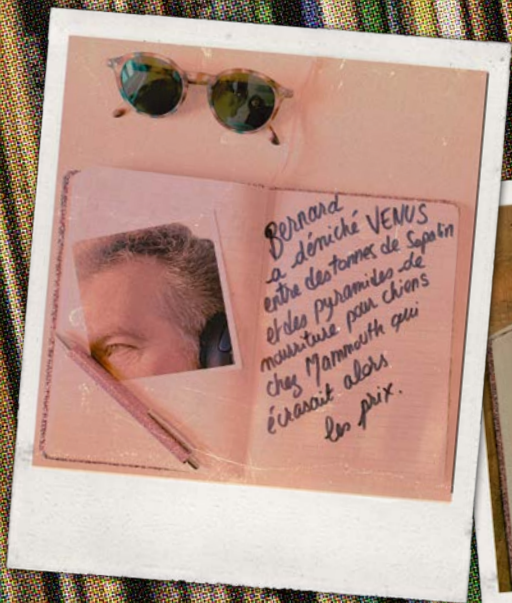 Bernard
a déniché VENUS
entre des tonnes de Sapolin
et des pyramides de
nourriture pour chiens
chez Mammouth qui
écrasait alors
les prix.